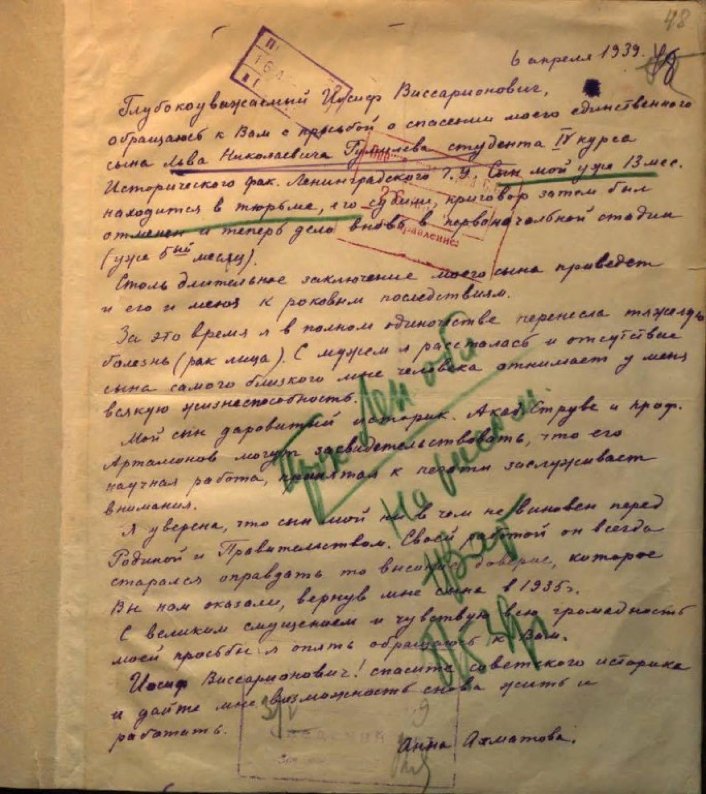 48
6 апреля 1939.
Глубокоуважаемый Иосиф Виссарионович,
обращаюсь к Вам с просьбой о спасении моего единственного
сына Льва Николаевича Гумилева студента IV курса
Исторического фак. Ленинградского Г.У. Сын мой уже 13 мес.
находится в тюрьме, его судили, приговор затем был
отменен и теперь дело вновь в первоначальной стадии
(уже 5ый месяц).
Столь длительное заключение моего сына приведет
и его и меня к роковым последствиям.
За это время я в полном одиночестве перенесла тяжелую
болезнь (рак лица). С мужем я рассталась и отсутствие
сына самого близкого мне человека отнимает у меня
всякую жизнеспособность.
Мой сын даровитый историк. Акад. Струве и проф.
Артамонов могут засвидетельствовать, что его
научная работа, принятая к печати заслуживает
внимания.
Я уверена, что сын мой ни в чем не виновен перед
Родиной и Правительством. Своей работой он всегда
старался оправдать то высокое доверие, которое
Вы нам оказали, вернув мне сына в 1935г.
С великим смущением и чувствуя всю громадность
моей просьбы я опять обращаюсь к Вам.
Иосиф Виссарионович! спасите советского историка
и дайте мне возможность снова жить и
работать.
Анна Ахматова.